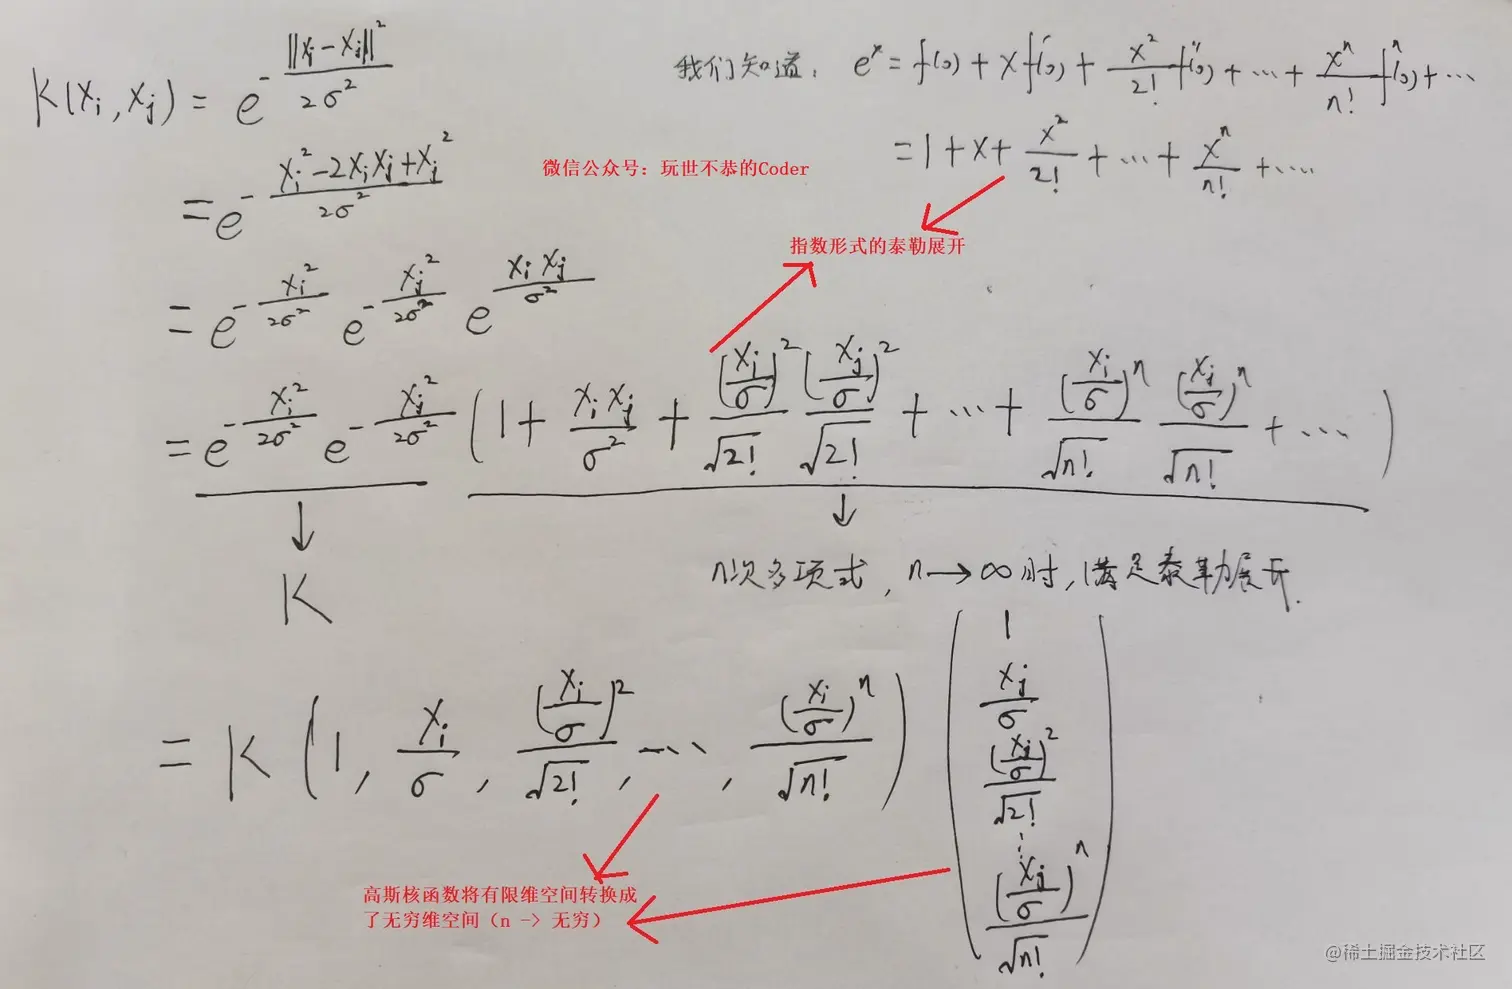 K(xᵢ, xⱼ) = e^{-\frac{||xᵢ - xⱼ||²}{2σ²}}
我们知道: eˣ = f(0) + x f'(0) + \frac{x²}{2!} f''(0) + ⋯ + \frac{xⁿ}{n!} fⁿ(0) + ⋯
= 1 + x + \frac{x²}{2!} + ⋯ + \frac{xⁿ}{n!} + ⋯
= e^{-\frac{xᵢ² - 2xᵢxⱼ + xⱼ²}{2σ²}}
微信公众号: 玩世不恭的Coder
指数形式的泰勒展开
= e^{-\frac{xᵢ²}{2σ²}} e^{-\frac{xⱼ²}{2σ²}} e^{\frac{xᵢxⱼ}{σ²}}
= e^{-\frac{xᵢ²}{2σ²}} e^{-\frac{xⱼ²}{2σ²}} (1 + \frac{xᵢxⱼ}{σ²} + \frac{(\frac{xᵢ}{σ})²}{\sqrt{2!}} \frac{(\frac{xⱼ}{σ})²}{\sqrt{2!}} + ⋯ + \frac{(\frac{xᵢ}{σ})ⁿ}{\sqrt{n!}} \frac{(\frac{xⱼ}{σ})ⁿ}{\sqrt{n!}} + ⋯)
↓
↓
K
n次多项式, n→∞时, 满足泰勒展开.
= K (1, \frac{xᵢ}{σ}, \frac{(\frac{xᵢ}{σ})²}{\sqrt{2!}}, ⋯, \frac{(\frac{xᵢ}{σ})ⁿ}{\sqrt{n!}})
1
\frac{xⱼ}{σ}
\frac{(\frac{xⱼ}{σ})²}{\sqrt{2!}}
⋮
\frac{(\frac{xⱼ}{σ})ⁿ}{\sqrt{n!}}
高斯核函数将有限维空间转换成
了无穷维空间（n -> 无穷）
@稀土掘金技术社区